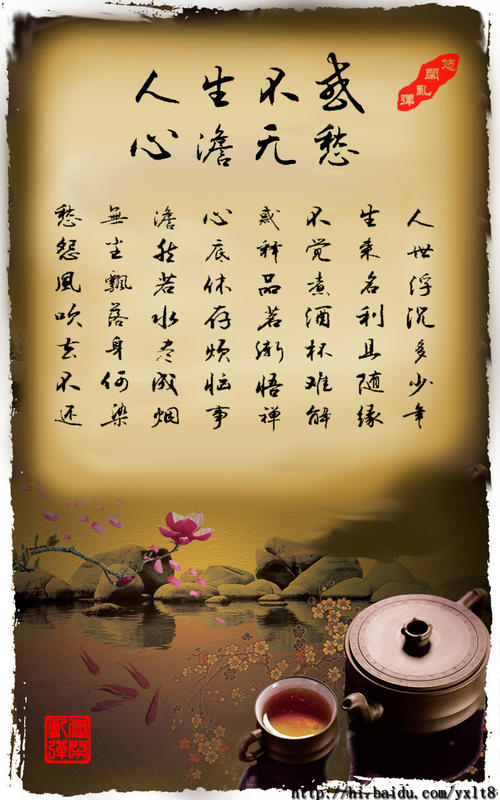 人生不惑
心澹无愁
悠閑亂彈
人世浮沉多少年
生来名利且随缘
不觉煮酒杯难解
惑释品茗渐悟禅
心底休存烦恼事
澹然若水尽成烟
無尘飘落身何染
愁怨風吹去不还
悠閑亂彈
http://hi.baidu.com/yxlt8